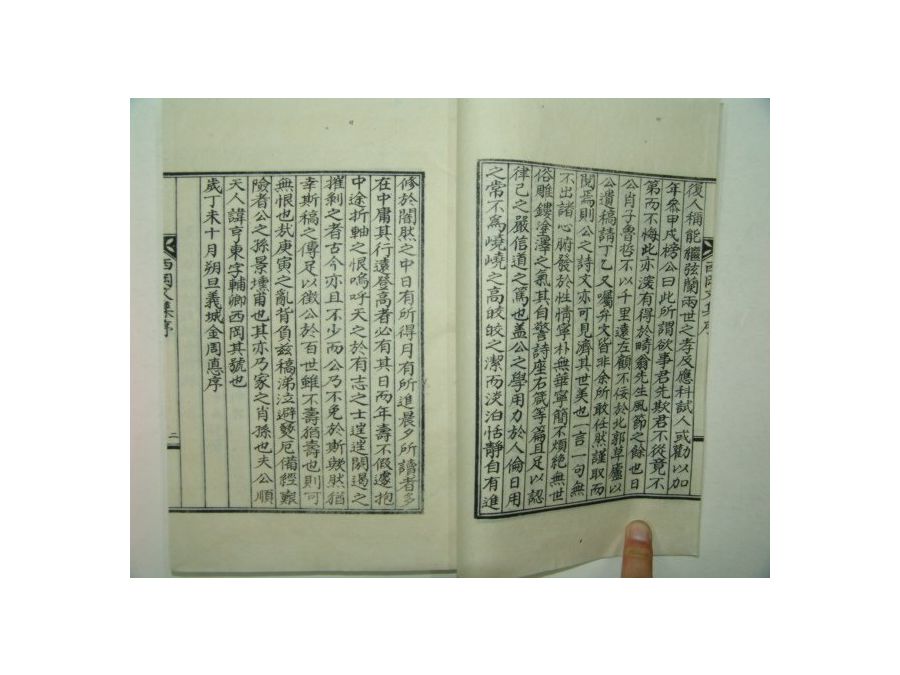 復人稱能繼弦蘭兩世之孝及應科試人或勸以加
年叅甲戌榜公曰此所謂欲事君先欺君不從竟不
第而不悔此亦深有得於晴翁先生風節之餘也日
公肖子魯哲不以千里遠左顧不佞於北郭草廬以
公遺稿請丁乙又囑弁文皆非余所敢任然謹取而
閱焉則公之詩文亦可見濟其世美也一言一句無
不出諸心腑發於性情寧朴無華寧簡不煩絶無世
俗雕鏤塗澤之氣其自警詩座右箴等篇且足以認
律己之嚴信道之篤也盖公之學用力於人倫日用
之常不爲嶢嶢之高皎皎之潔而淡泊恬靜自有進
西岡文集序
修於闇然之中日有所得月有所進晨夕所讀者多
在中庸其行遠登高者必有其日而年壽不假遽抱
中途折軸之恨嗚呼天之於有志之士迬迬閼遏之
摧剝之者古今亦且不少而公乃不免於斯歟然猶
幸斯稿之傳足以徵公於百世雖不壽猶壽也則可
無恨也㢤庚寅之亂背負玆稿涕泣避燹厄備經艱
險者公之孫景壎甫也其亦乃家之肖孫也夫公順
天人諱亨東字輔卿西岡其號也
歲丁未十月朔旦義城金周悳序
西岡文集序
二